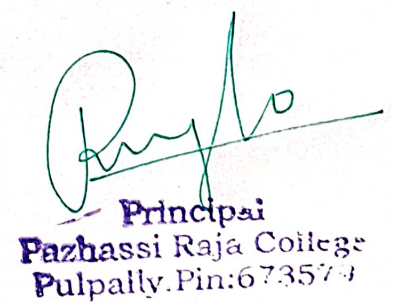 Principal
Pazhassi Raja College
Pulpally.Pin:673579